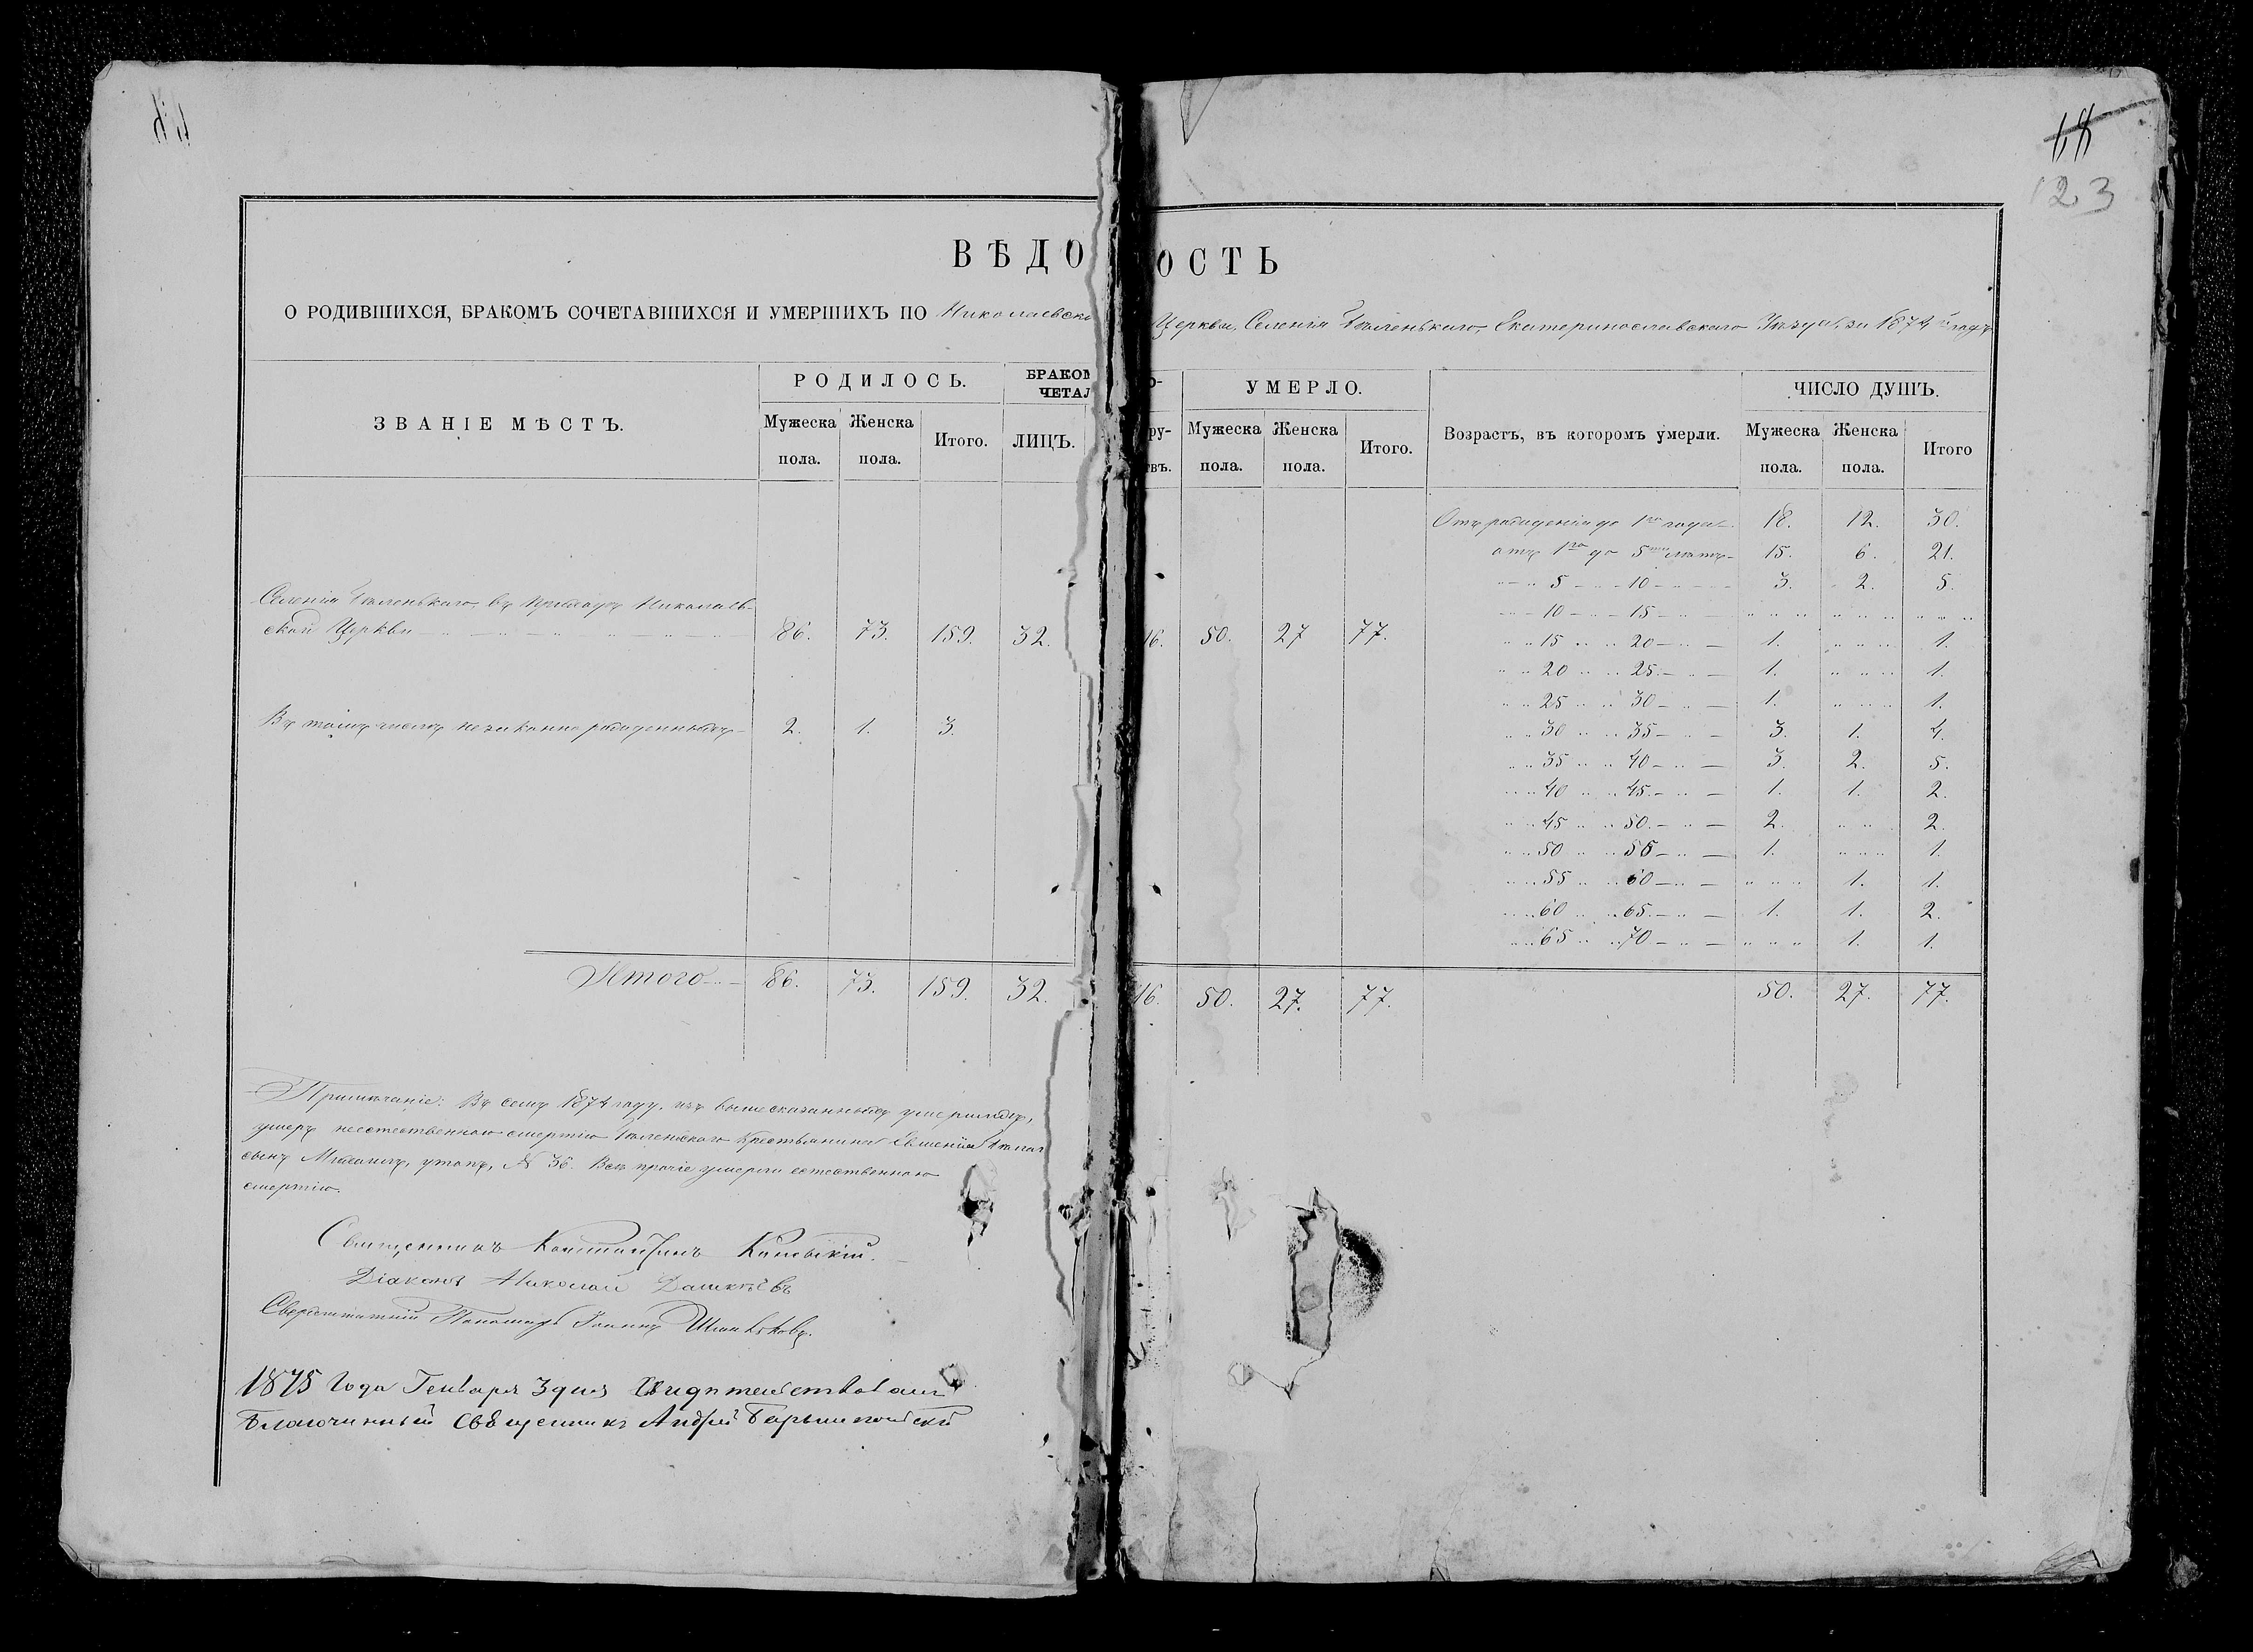 68
123
ВѢДО ОСТЬ
О РОДИВШИХСЯ, БРАКОМЪ СОЧЕТАВШИХСЯ И УМЕРШИХЪ ПО Николаевско Церкви, Селенія Екатеринославскаго Уѣзда, за 1874 годъ
ЗВАНІЕ МѢСТЪ. РОДИЛОСЬ. БРАКОМ ЧЕТАЛ о- УМЕРЛО. Возрастъ, въ которомъ умерли. ЧИСЛО ДУШЪ.
Мужеска пола. Женска пола. Итого. ЛИЦЪ. ру- твъ. Мужеска пола. Женска пола. Итого. Мужеска пола. Женска пола. Итого
Отъ рожденія до 1го года 18. 12. 30.
отъ 1го до 5ти лѣтъ 15. 6. 21.
5 10 3. 2. 5.
10 15
15 20 1. 1.
20 25. 1. 1.
25 30 1. 1.
30 35 3. 1. 4.
35 40 3. 2. 5.
40 45. 1. 1. 2.
45 50. 2. 2.
50 55 1. 1.
55 60 1. 1.
60 65. 1. 1. 2.
65 70 1. 1.
Селенія въ приходѣ Николаев-
ской Церкви 86. 73. 159. 32. 16. 50. 27 77.
Въ томъ числѣ незаконнорожденныхъ 2. 1. 3.
Итого 86. 73. 159. 32. 16. 50. 27. 77. 50. 27. 77.
Примѣчаніе: Въ семъ 1874 году, изъ вышесказанныхъ умершихъ,
умеръ неестественною смертію Крестьянина
сынъ Михаилъ, утопъ, № 36. Всѣ прочіе умерли естественною
смертію.
Священникъ Константинъ
Діаконъ Николай Дашкѣевъ
Сверхштатный Пономарь Іоаннъ
1875 Года Генваря 3 дня Свидѣтельствовалъ
Благочинный Священникъ Андрей